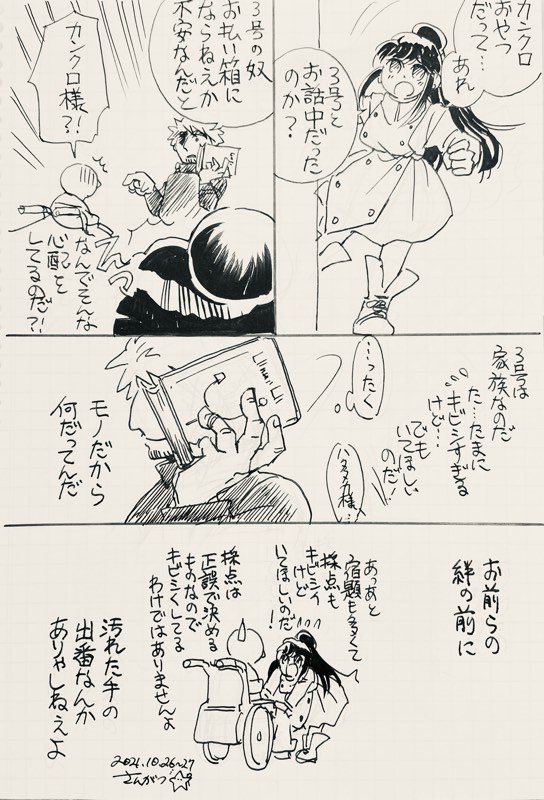 カンクロ
おやつ
だって…
あれ
3号と
お話中だった
のか?
3号の奴
お払い箱に
ならねえか
不安なんだと
カンクロ様?!
なんでそんな
心配を
してるのだ?!
3号は
家族なのだ
た…たまに
キビシすぎる
けど…
でも
いてほしい
のだ!
…ったく
モノだから
何だってんだ
お前らの
絆の前に
あっあと
宿題も多くて
採点も
キビシイ
けど
いてほしいのだ!
採点は
正誤で決める
ものなので
キビシくしてる
わけではありませんよ
汚れた手の
出番なんか
ありゃしねえよ
2021.10.26~27
さんがつ